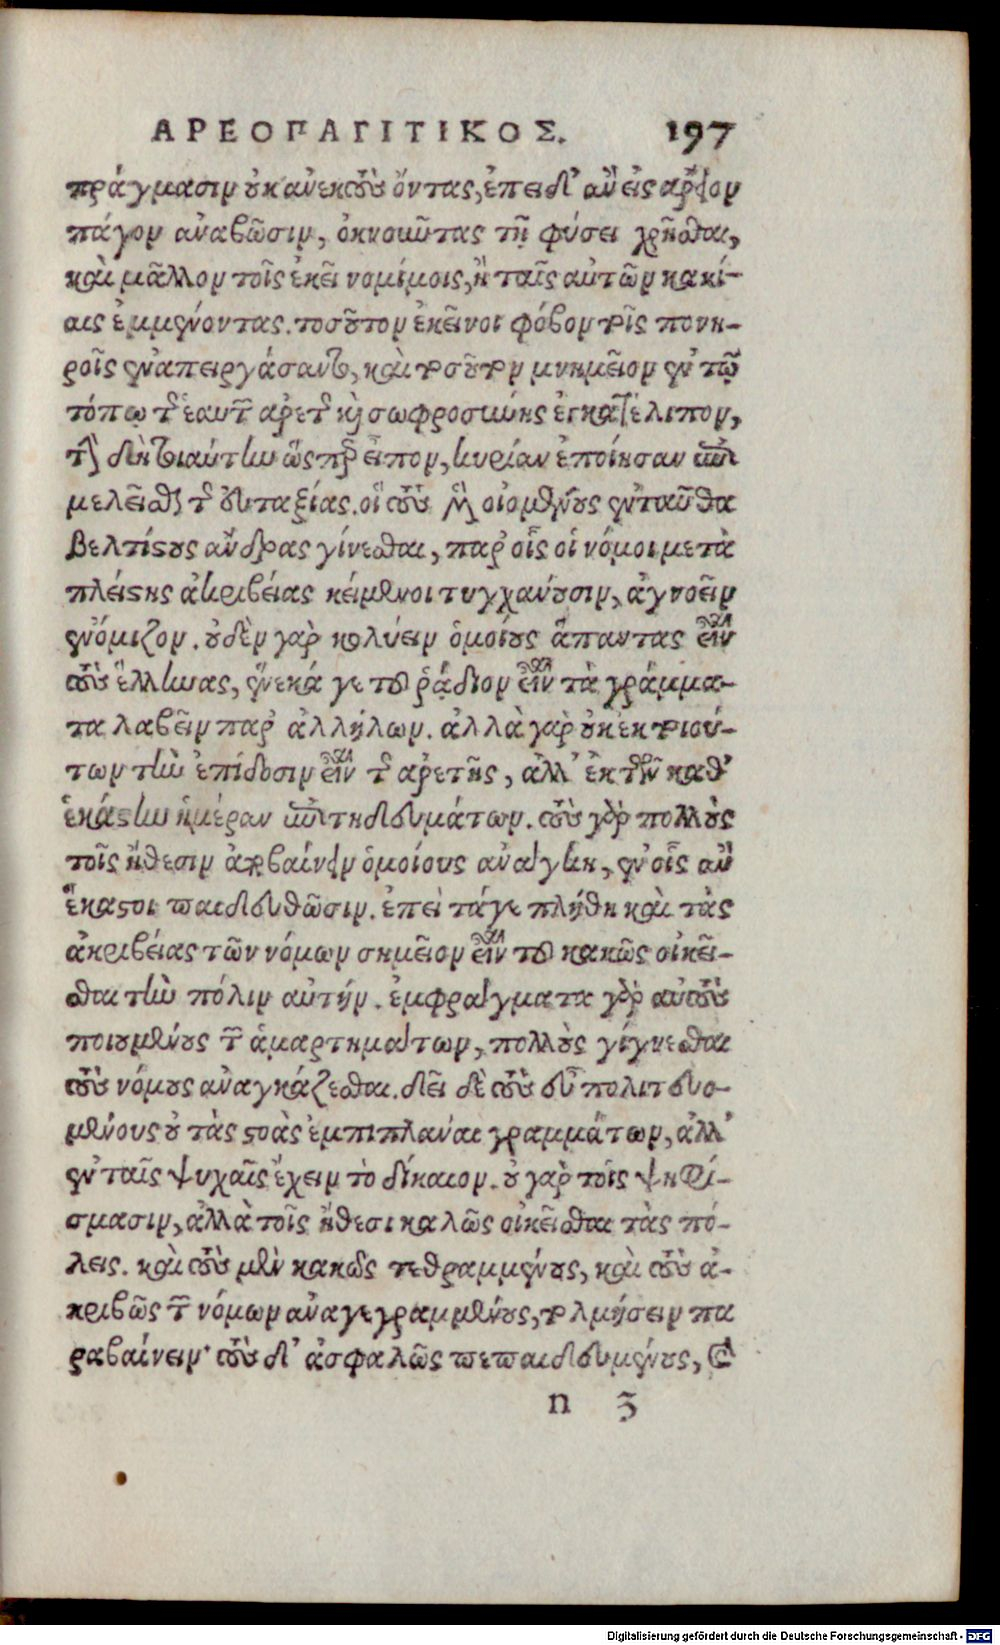 ΑΡΕΟΠΑΓΙΤΙΚΟΣ. 197
πράγμασιν οὐκ ἀνεκτοὺς ὄντας, ἐπειδ' ἂν εἰς ἄρειον
πάγον ἀναβῶσιν, ὀκνοῦντας τῇ φύσει χρῆσθαι,
καὶ μᾶλλον τοῖς ἐκεῖ νομίμοις, ἢ ταῖς αὑτῶν κακί-
αις ἐμμένοντας. τοσοῦτον ἐκεῖνοι φόβον τοῖς πονη-
ροῖς ἐναπειργάσαντο, καὶ τοσοῦτον μνημεῖον ἐν τῷ
τόπῳ τῆς ἑαυτῶν ἀρετῆς καὶ σωφροσύνης ἐγκατέλιπον,
τὴν δὴ τοιαύτην ὥσπερ εἶπον, κυρίαν ἐποίησαν ἐπι
μελεῖσθαι τῆς εὐταξίας. οἳ τοὺς μὲν οἰομένους ἐνταῦθα
βελτίστους ἄνδρας γίνεσθαι, παρ' οἷς οἱ νόμοι μετὰ
πλείστης ἀκριβείας κείμενοι τυγχάνουσιν, ἀγνοεῖν
ἐνόμιζον. οὐδὲν γὰρ κωλύειν ὁμοίους ἅπαντας εἶναι
τοὺς ἕλληνας, ἕνεκά γε τοῦ ῥᾴδιον εἶναι τὰ γράμμα-
τα λαβεῖν παρ' ἀλλήλων. ἀλλὰ γὰρ οὐκ ἐκ τοιού-
των τὴν ἐπίδοσιν εἶναι τῆς ἀρετῆς, ἀλλ' ἐκ τῶν καθ'
ἑκάστην ἡμέραν ἐπιτηδευμάτων. τοὺς γὰρ πολλοὺς
τοῖς ἤθεσιν ἀποβαίνειν ὁμοίους ἀνάγκη, ἐν οἷς ἂν
ἕκαστοι παιδευθῶσιν. ἐπεὶ τά γε πλήθη καὶ τὰς
ἀκριβείας τῶν νόμων σημεῖον εἶναι τοῦ κακῶς οἰκεῖ-
σθαι τὴν πόλιν αὐτήν. ἐμφράγματα γὰρ αὐτοὺς
ποιουμένους τῶν ἁμαρτημάτων, πολλοὺς γίγνεσθαι
τοὺς νόμους ἀναγκάζεσθαι. δεῖ δὲ τοὺς εὖ πολιτευο-
μένους οὐ τὰς στοὰς ἐμπιπλάναι γραμμάτων, ἀλλ'
ἐν ταῖς ψυχαῖς ἔχειν τὸ δίκαιον. οὐ γὰρ τοῖς ψηφί-
σμασιν, ἀλλὰ τοῖς ἤθεσι καλῶς οἰκεῖσθαι τὰς πό-
λεις. καὶ τοὺς μὲν κακῶς τεθραμμένους, καὶ τοὺς ἀ-
κριβῶς τῶν νόμων ἀναγεγραμμένους, τολμήσειν πα
ραβαίνειν· τοὺς δ' ἀσφαλῶς πεπαιδευμένους, καὶ
n 3
Digitalisierung gefördert durch die Deutsche Forschungsgemeinschaft - DFG